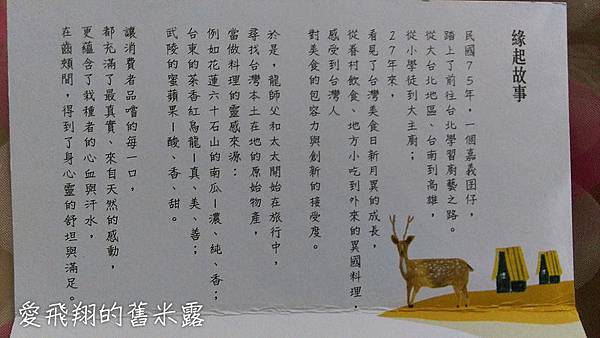 緣起故事
民國75年，一個嘉義囝仔，
踏上了前往台北學習廚藝之路。
從大台北地區、台南到高雄，
從小學徒到大主廚；
27年來，
看見了台灣美食日新月異的成長，
從眷村飲食、地方小吃到外來的異國料理，
感受到台灣人
對美食的包容力與創新的接受度。
於是，龍師父和太太開始在旅行中，
尋找台灣本土在地的原始物產，
當做料理的靈感來源：
例如花蓮六十石山的南瓜—濃、純、香；
台東的茶香紅烏龍—真、美、善；
武陵的蜜蘋果—酸、香、甜。
讓消費者品嚐的每一口，
都充滿了最真實、來自天然的感動，
更蘊含了栽種者的心血與汗水，
在齒頰間，得到了身心靈的舒坦與滿足。
愛飛翔的舊米露